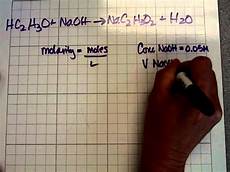 HC₂H₃O + NaOH → NaC₂H₃O₂ + H₂O
molarity = moles
L
Conc NaOH = 0.05M
V NaO